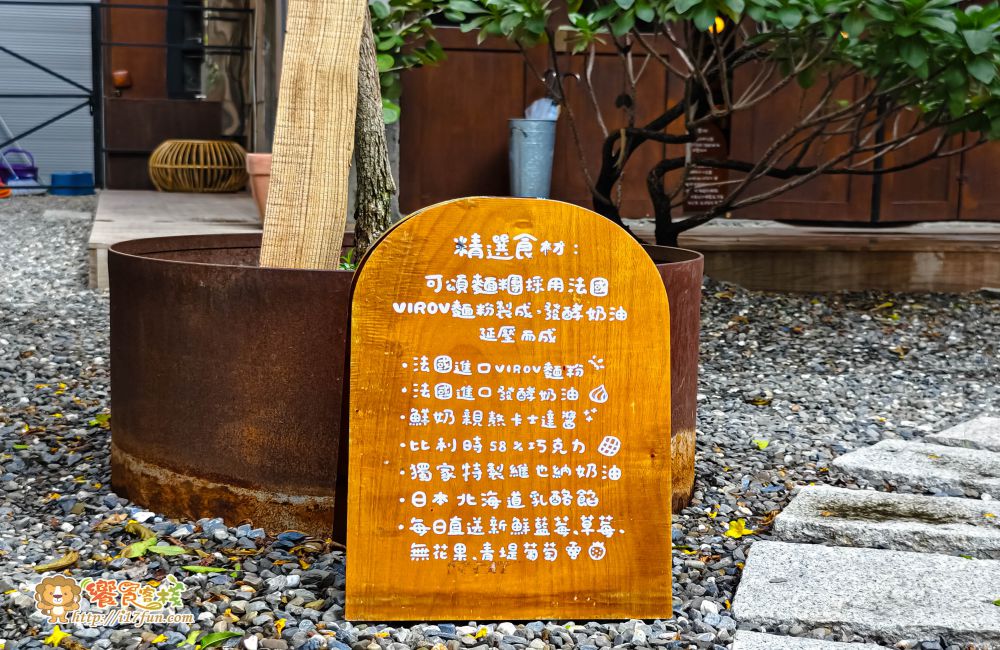 精選食材：
可頌麵糰採用法國
VIROV麵粉製成，發酵奶油
延壓而成
・法國進口VIROV麵粉
・法國進口發酵奶油
・鮮奶親熬卡士達醬
・比利時58%巧克力
・獨家特製維也納奶油
・日本北海道乳酪餡
・每日直送新鮮藍莓、草莓、
無花果、青堤葡萄
饗食客棧
https://i17fun.com/